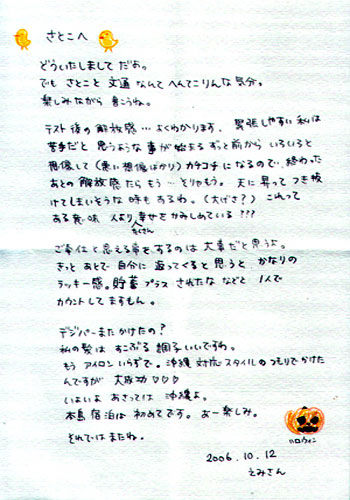 さとこへ
どういたしまして だぉ。
でも さとこと 文通 なんて へんてこりんな 気分っ
楽しみながら 書こうね。
テスト後の解放感… よくわかります。緊張しやすい私は
苦手だと 思うような 事が始まる ずっと前から いろいろと
想像して(悪い想像ばかり)カチコチになるので、終わった
あとの 解放感たら もう… そりゃもう。 天に昇って つき抜
けてしまいそうな 時も あるわ。(大げさ?) これって
ある意味 人より たくさん 幸せを かみしめている???
ご奉仕と思える事をするのは 大事だと思うよ。
きっと あとで 自分に 返ってくると思うと かなりの
ラッキー感。貯蓄 プラス されたな などと 1人で
カウントしてますもん。
デジパーまたかけたの?
私の髪は すこぶる 調子いいですわ。
もう アイロン いらずで。沖縄 対応スタイルの つもりでかけた
んですが 大成功♡♡♡
いよいよ あさっては 沖縄よ。
本島 宿泊は 初めてです。あー楽しみ。
それでは またね。
ハロウィン
2006.10.12
えみさん